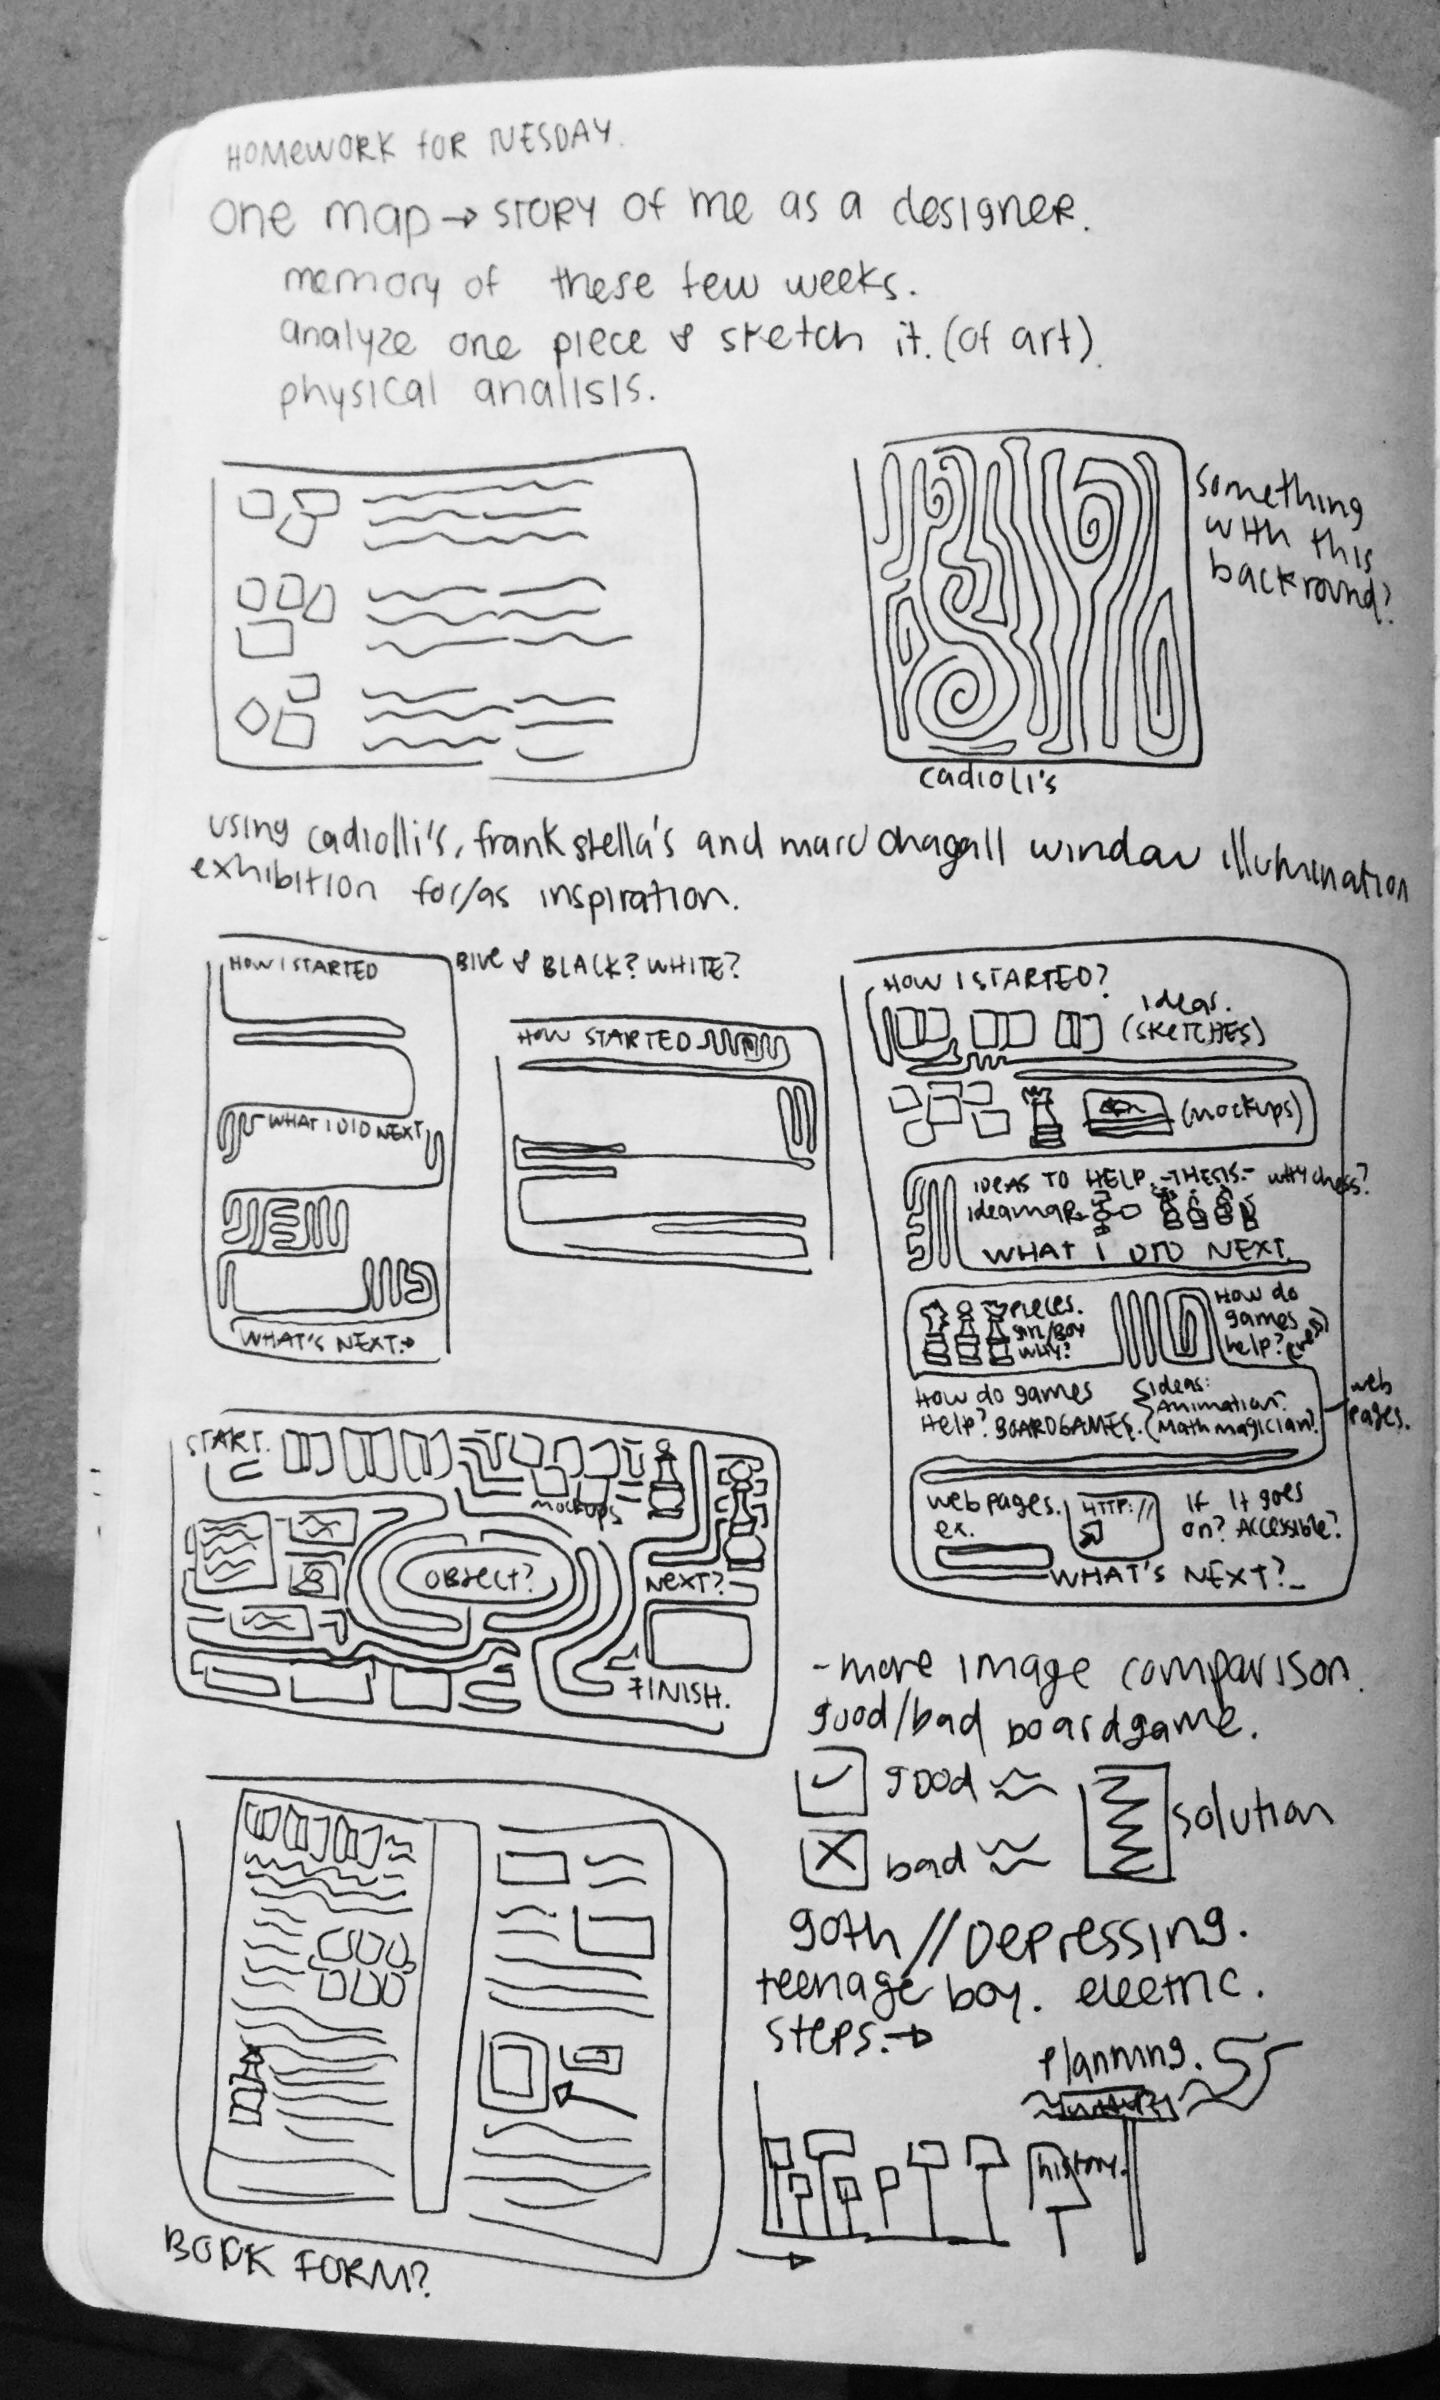 HOMEWORK FOR TUESDAY.
one map → STORY of me as a designer.
memory of these few weeks.
analyze one piece & sketch it. (of art)
physical analisis.
something
with this
backround?
cadioli's
using cadiolli's, frank stella's and marc chagall window illumination
exhibition for/as inspiration.
HOW I STARTED
BLUE & BLACK? WHITE?
WHAT I DID NEXT
WHAT'S NEXT→
HOW STARTED
HOW I STARTED?
ideas.
(SKETCHES)
(mockups)
IDEAS TO HELP -THESIS- why chess?
ideamap
WHAT I DID NEXT
PIECES.
girl/BOY
WHY?
HOW do
games
help?
How do games
Help? BOARDGAMES.
ideas:
Animation?
Mathmagician?
web
pages.
web pages.
ex.
HTTP://
If it goes
on? Accessible?
WHAT'S NEXT?
START.
mockups
OBJECT?
NEXT?
FINISH.
-more image comparison.
good/bad boardgame.
good
bad
solution
goth // Depressing.
teenage boy. electric.
steps.→
planning.
history.
BOOK FORM?